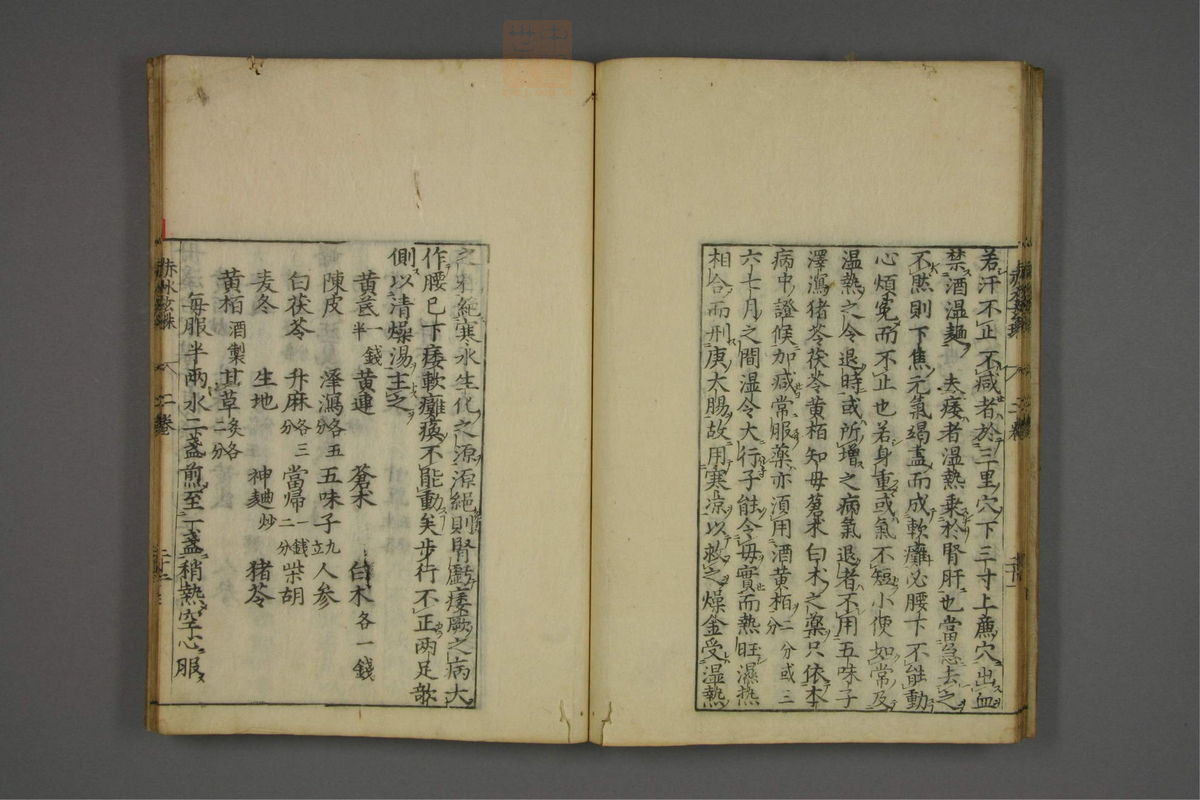 若汗不止不减者於三里穴下三寸上廉穴出血
禁酒温麺 夫痿者温熱乗於腎肝也當急去之
不然則下焦元氣竭盡而成軟癱必腰下不能動
心煩冤而不止也若身重或氣不短小便如常及
温熱之令退時或所増之病氣退者不用五味子
澤瀉猪苓茯苓黄栢知母蒼朮白朮之藥只依本
病中證候加减常服藥亦須用酒黄栢二分或三分
六七月之間温令大行子能令母實而熱旺濕热
相合而刑庚大腸故用寒凉以救之燥金受湿熱
赤水玄珠 二巻
之邪絶寒水生化之源源絶則腎虧痿厥之病大
作腰已下痿軟癱瘓不能動矣歩行不正两足欹
側以清燥湯主之
黄芪一錢半 黄連 蒼朮 白朮各一錢
陳皮 澤瀉各五分 五味子九立 人参
白茯苓 升麻各三分 當帰一錢二分 柴胡
麦冬 生地 神麯炒 猪苓
黄栢酒製 甘草炙各二分
毎服半両水二盞煎至一盞稍熱空心服
赤水玄珠 二巻